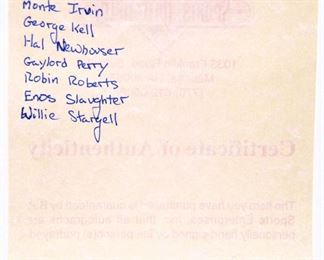 Monte Irvin
George Kell
Hal Newhouser
Gaylord Perry
Robin Roberts
Enos Slaughter
Willie Stargell
Certificate of Authenticity
The item you have purchased is guaranteed by
Sports Enterprises, Inc. that all autographs are
personally hand signed by the person(s) portrayed